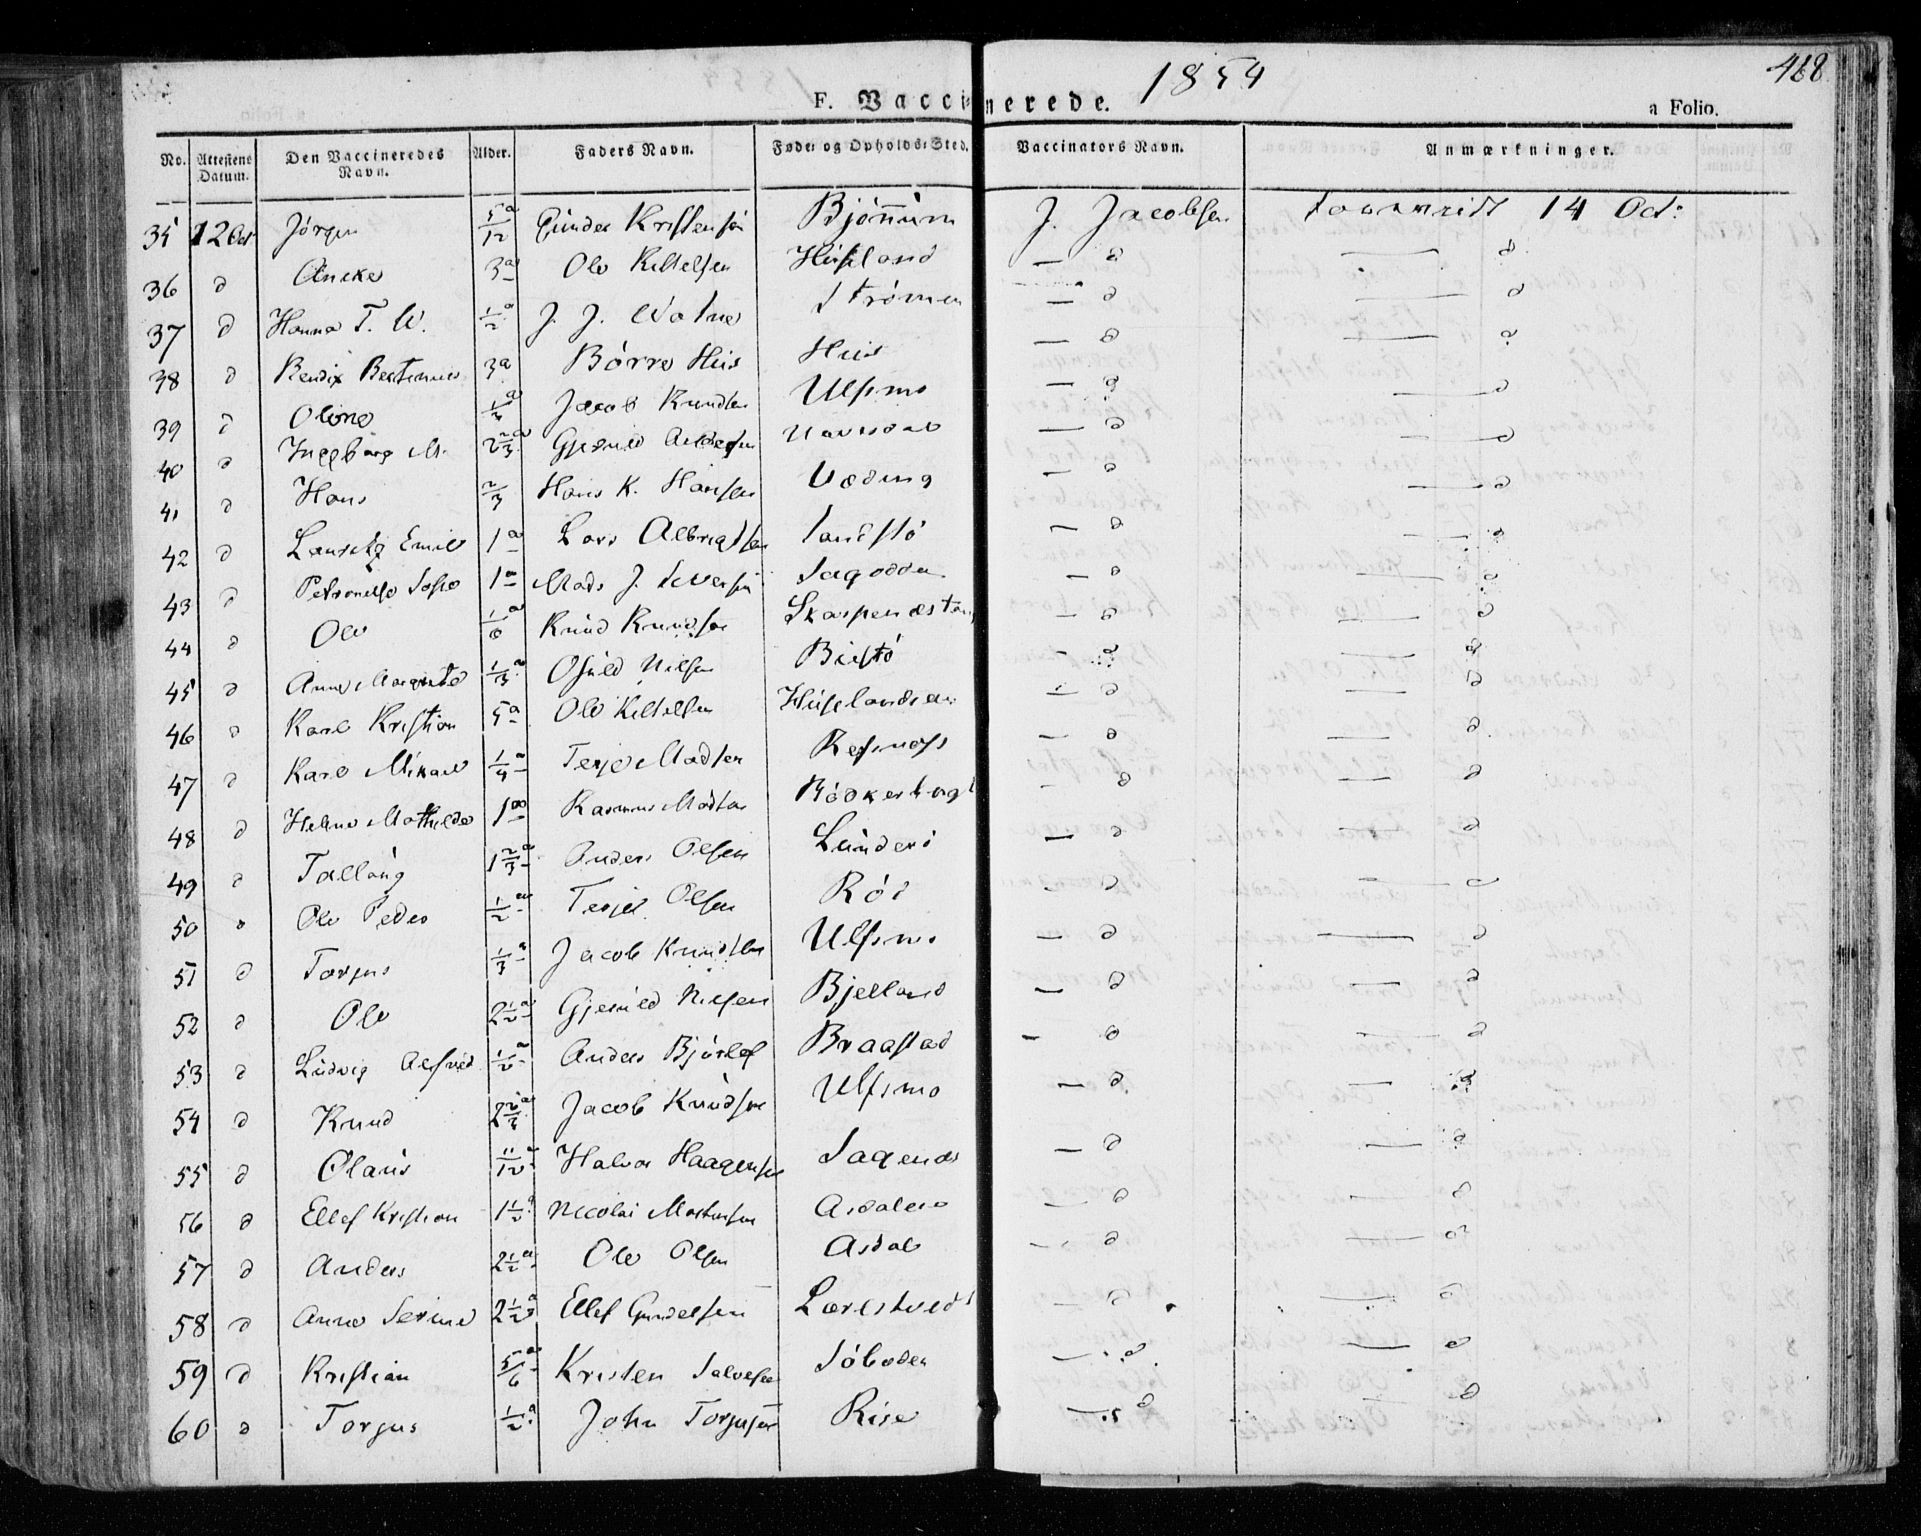 1854
418
F. Vaccinerede.
a Folio.
No. Attestens Datum. Den Vaccineredes Navn. Alder. Faders Navn. Føde- og Opholds-Sted. Vaccinators Navn. Anmærkninger.
35 12 Oct Jörgen 5/12 a Gunder Kristensön Bjönnum J. Jacobsen 14 Oct:
36 d Aneke 3 a Ole Kittelsen Huseland — d — d
37 d Hanna T. W. 1/2 a J. J. Watne Strömen — d — d
38 d Bendix Bertinius 3 a Börre Hus Hus — d — d
39 d Oline a Jacob Knudsen Ulfsmo — d — d
40 d Ingebörg M. 2 2/3 a Gjeruld — d — d
41 d Hans 2/3 Hans K. Hansen Væding — d — d
42 d Lauritz Emil 1 a Lars Albregtsen Sandstö — d — d
43 d Petronelle Sofie 1 a Mads J. Seversen Sagodden — d — d
44 d Ole 1/6 a Knud Knudsen — d — d
45 d Anne Margrete 1/3 a Osuld Nilsen Bustö — d — d
46 d Karl Kristian 5 a Ole Kittelsen Huselandseie — d — d
47 d Karl Mikael 1/4 a Terje Madsen Refsnæss — d — d
48 d Helene Mathilde 1 a Rasmus Madsen — d — d
49 d Tallang 1 2/3 a Anders Olsen Lunderö — d — d
50 d Ole Peder 1/2 a Terjel Olsen Röd — d — d
51 d Torjus 1/3 a Jacob Knudsen Ulfsmo — d — d
52 d Ole 2 1/2 a Gjeruld Nilsen Bjelland — d — d
53 d Ludvig Alfred 1/2 a Anders Björlef Braastad — d — d
54 d Knud 2 a Jacob Knudsen Ulfsmo — d — d
55 d Olaus 11/12 a Halvor Haagensen Sagenes — d — d
56 d Ellef Kristian 1 1/2 a Nicolai Mortensen Asdaleie — d — d
57 d Anders 2 1/2 a Ole Olsen Asdal — d — d
58 d Anne Serine 2 1/2 a Ellef Gundelsen Lærestvedt — d — d
59 d Kristian 5/6 a Kristen Salvesen Söboden — d — d
60 d Torjus 1/2 a John Torjusen Rise — d — d